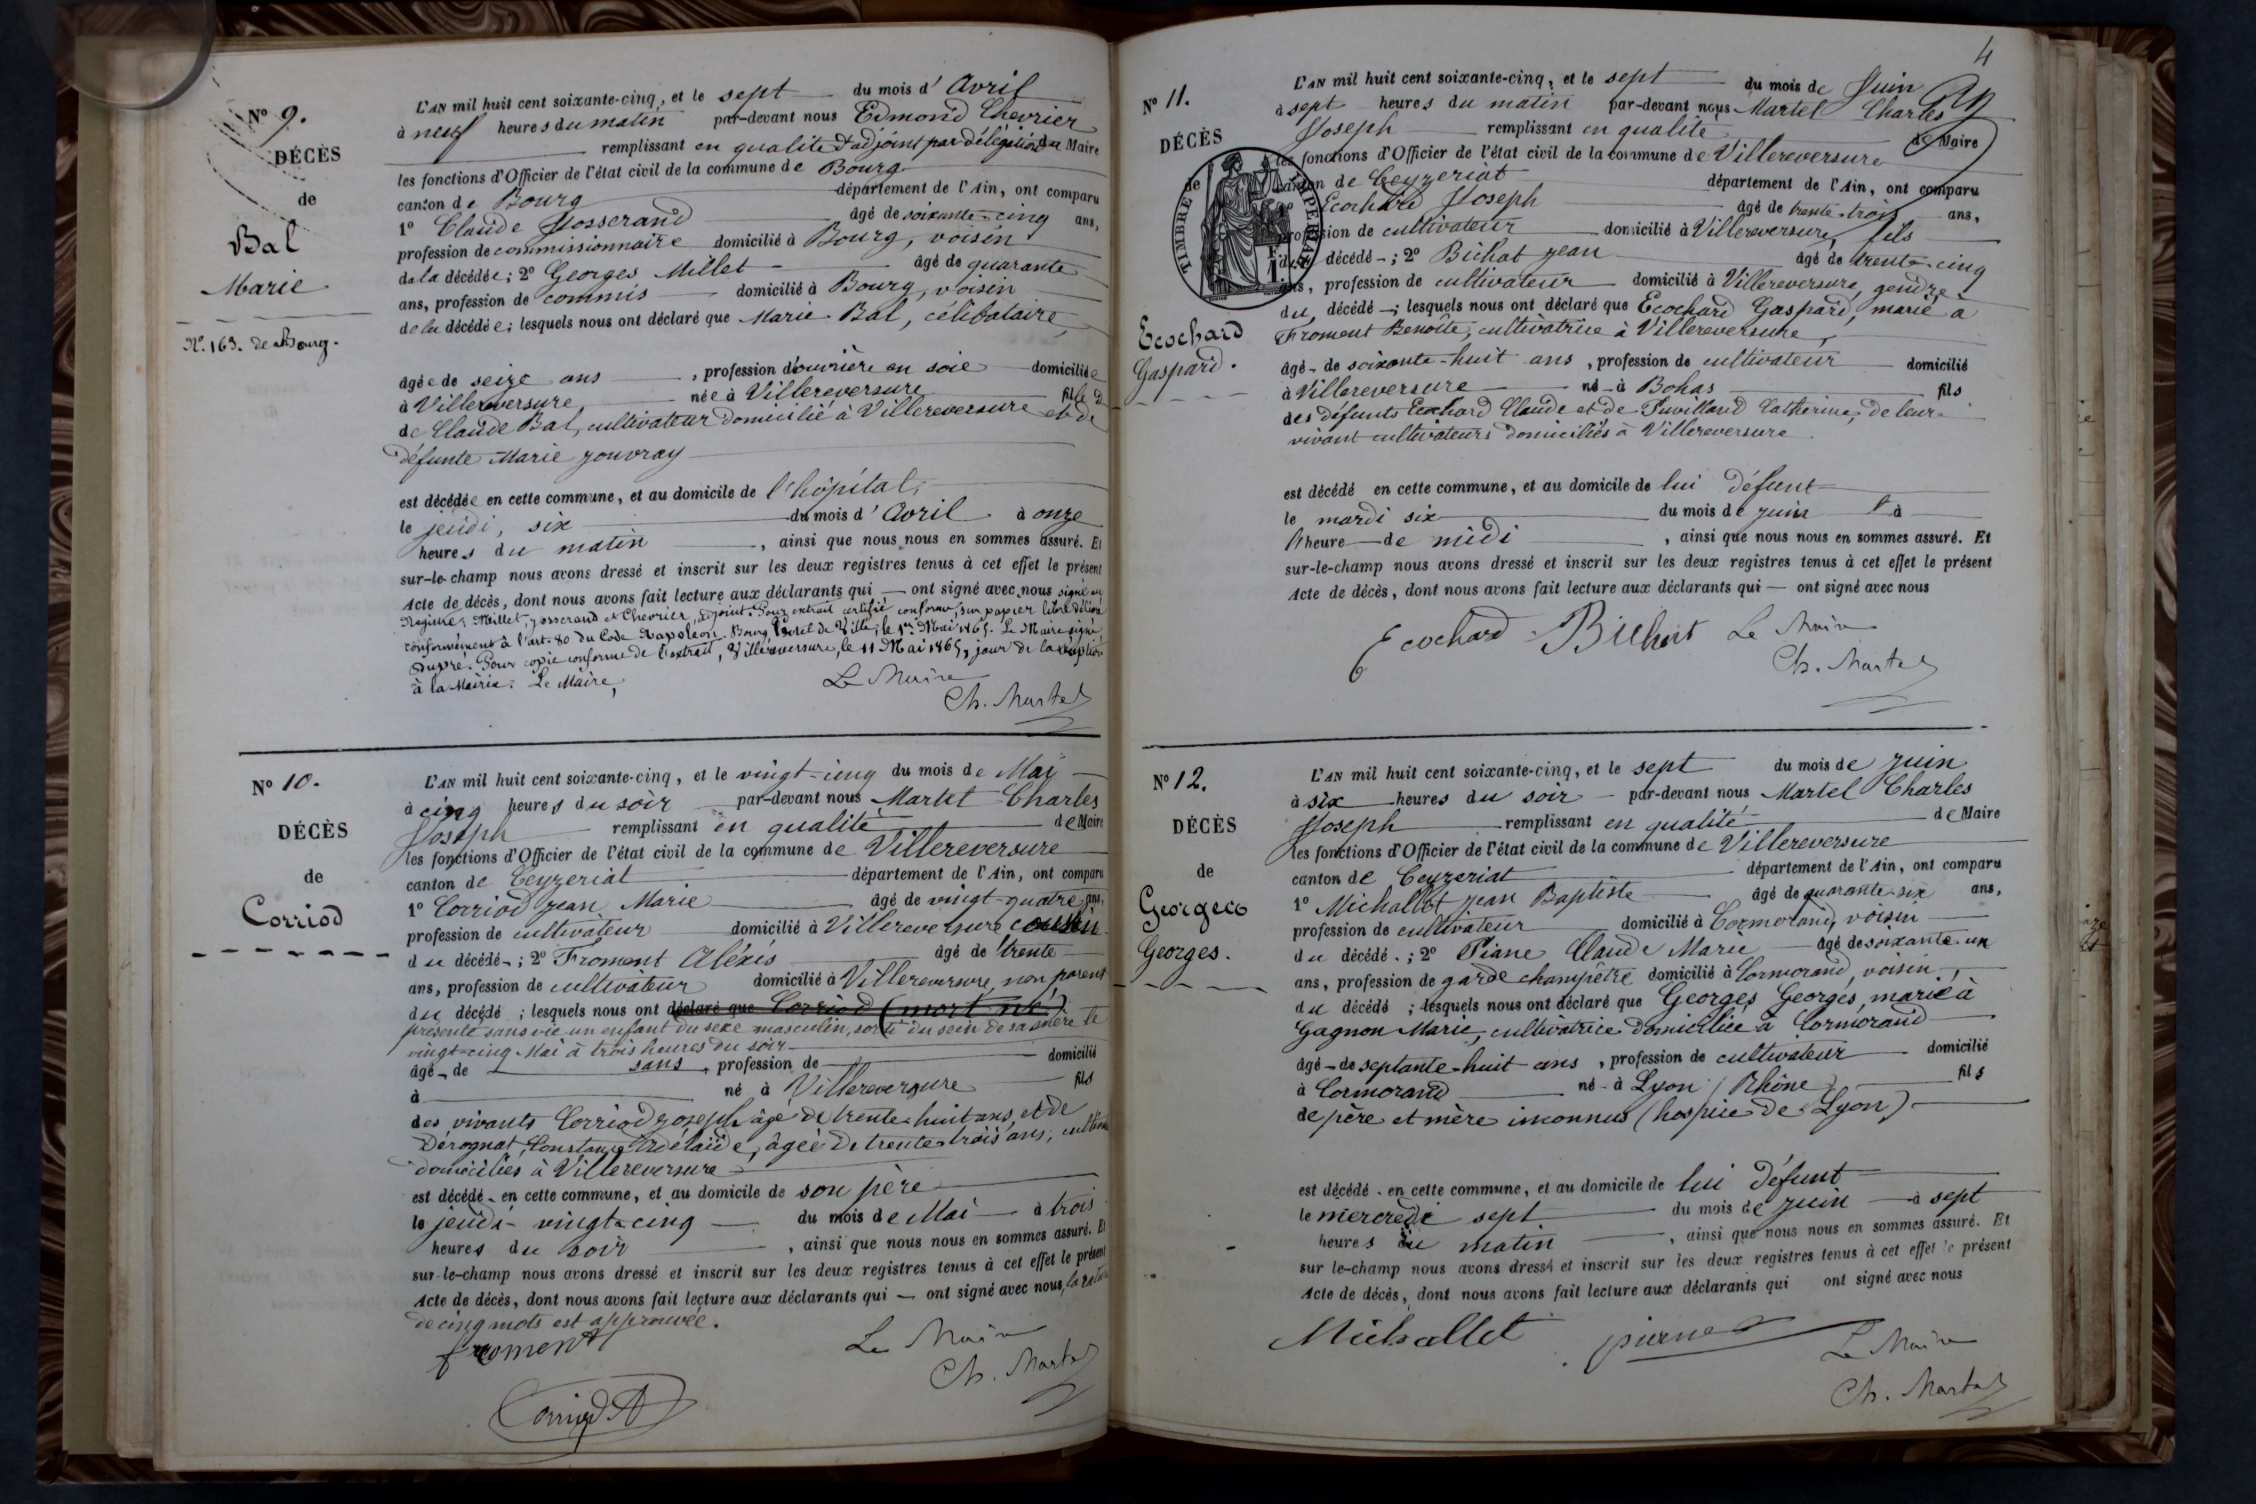 N° 9.
DÉCÈS
de
Bal
Marie
N°. 163. de Bourg.
L'AN mil huit cent soixante-cinq, et le sept du mois d' Avril
à neuf heures du matin par-devant nous Edmond Chevrier
remplissant en qualité d'adjoint par délégation du Maire
les fonctions d'Officier de l'état civil de la commune de Bourg
canton de Bourg département de l'Ain, ont comparu
1° Claude Josserand âgé de soixante-cinq ans,
profession de commissionnaire domicilié à Bourg, voisin
de la décédée; 2° Georges Millet âgé de quarante
ans, profession de commis domicilié à Bourg, voisin
de la décédée; lesquels nous ont déclaré que Marie Bal, célibataire,
âgée de seize ans, profession d'ouvrière en soie domiciliée
à Villereversure née à Villereversure fille
de Claude Bal, cultivateur domicilié à Villereversure et de
défunte Marie Jouvray
est décédée en cette commune, et au domicile de l'hôpital,
le jeudi, six du mois d' Avril à onze
heures du matin, ainsi que nous nous en sommes assuré. Et
sur-le-champ nous avons dressé et inscrit sur les deux registres tenus à cet effet le présent
Acte de décès, dont nous avons fait lecture aux déclarants qui — ont signé avec nous signé au
Registre, Millet, Josserand et Chevrier, adjoint. Pour extrait certifié conforme, sur papier libre délivré
conformément à l'art. 80 du Code Napoléon. Bourg, Hôtel de Ville, le 1er Mai 1865. Le Maire signé
Dupré. Pour copie conforme de l'extrait, Villereversure, le 11 Mai 1865, jour de la réception
à la Mairie. Le Maire,
Le Maire
Ch. Martel
N° 10.
DÉCÈS
de
Corriod
L'AN mil huit cent soixante-cinq, et le vingt-cinq du mois de Mai
à cinq heures du soir par-devant nous Martel Charles
Joseph remplissant en qualité de Maire
les fonctions d'Officier de l'état civil de la commune de Villereversure
canton de Ceyzeriat département de l'Ain, ont comparu
1° Corriod Jean Marie âgé de vingt-quatre ans,
profession de cultivateur domicilié à Villereversure cousin
du décédé; 2° Froment Aléxis âgé de trente
ans, profession de cultivateur domicilié à Villereversure, non parent
du décédé; lesquels nous ont déclaré que Corriod (mort né)
présenté sans vie un enfant du sexe masculin, sorti du sein de sa mère le
vingt-cinq Mai à trois heures du soir
âgé de sans, profession de domicilié
à né à Villereversure fils
des vivants Corriod Joseph âgé de trente-huit ans, et de
Dérognat, Constance Adélaïde, âgée de trente-trois ans,
domiciliés à Villereversure
est décédé en cette commune, et au domicile de son père
le jeudi vingt-cinq du mois de Mai à trois
heures du soir, ainsi que nous nous en sommes assuré. Et
sur-le-champ nous avons dressé et inscrit sur les deux registres tenus à cet effet le présent
Acte de décès, dont nous avons fait lecture aux déclarants qui — ont signé avec nous, la
de cinq mots est approuvée.
froment
Le Maire
Ch. Martel
Corriod
4
N° 11.
DÉCÈS
de
TIMBRE IMPERIAL
Ecochard
Gaspard.
L'AN mil huit cent soixante-cinq, et le sept du mois de Juin
à sept heures du matin par-devant nous Martel Charles
Joseph remplissant en qualité de Maire
les fonctions d'Officier de l'état civil de la commune de Villereversure
canton de Ceyzeriat département de l'Ain, ont comparu
1° Ecochard Joseph âgé de trente-trois ans,
profession de cultivateur domicilié à Villereversure, fils
du décédé; 2° Bichat Jean âgé de trente-cinq
ans, profession de cultivateur domicilié à Villereversure, gendre
du décédé; lesquels nous ont déclaré que Ecochard Gaspard, marié à
Froment Benoîte, cultivatrice à Villereversure,
âgé de soixante-huit ans, profession de cultivateur domicilié
à Villereversure né à Bohas fils
des défunts Ecochard Claude et de Puvilland Catherine, de leur
vivant cultivateurs domiciliés à Villereversure
est décédé en cette commune, et au domicile de lui défunt
le mardi six du mois de juin à
heure de midi, ainsi que nous nous en sommes assuré. Et
sur-le-champ nous avons dressé et inscrit sur les deux registres tenus à cet effet le présent
Acte de décès, dont nous avons fait lecture aux déclarants qui — ont signé avec nous
Ecochard Bichat Le Maire
Ch. Martel
N° 12.
DÉCÈS
de
Georges
Georges.
L'AN mil huit cent soixante-cinq, et le sept du mois de juin
à six heures du soir par-devant nous Martel Charles
Joseph remplissant en qualité de Maire
les fonctions d'Officier de l'état civil de la commune de Villereversure
canton de Ceyzeriat département de l'Ain, ont comparu
1° Michallet Jean Baptiste âgé de quarante-six ans,
profession de cultivateur domicilié à Cormorand, voisin
du décédé; 2° Piane Claude Marie âgé de soixante-un
ans, profession de garde champêtre domicilié à Cormorand, voisin
du décédé; lesquels nous ont déclaré que Georges Georges, marié à
Gagnon Marie, cultivatrice domiciliée à Cormorand
âgé de septante-huit ans, profession de cultivateur domicilié
à Cormorand né à Lyon (Rhône) fils
de père et mère inconnus (hospice de Lyon)
est décédé en cette commune, et au domicile de lui défunt
le mercredi sept du mois de juin à sept
heures du matin, ainsi que nous nous en sommes assuré. Et
sur le-champ nous avons dressé et inscrit sur les deux registres tenus à cet effet le présent
Acte de décès, dont nous avons fait lecture aux déclarants qui ont signé avec nous
Michallet
Le Maire
Ch. Martel